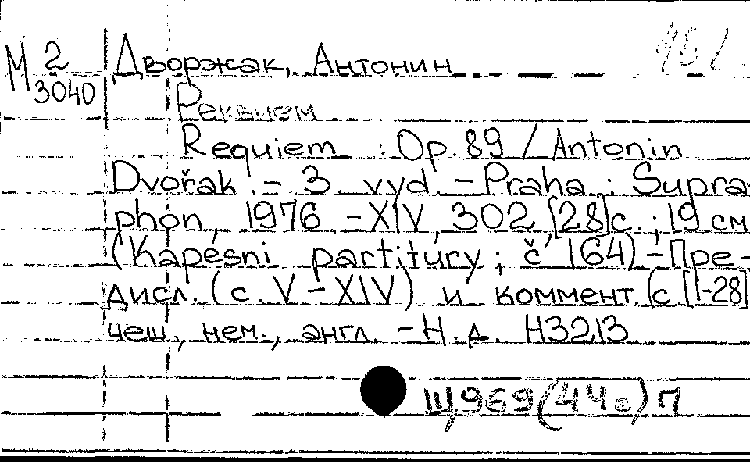 М 2
3040
Дворжак, Антонин
Реквием
Requiem : Op. 89 / Antonin
Dvořak. – 3. vyd. – Praha : Supra-
phon, 1976. – XIV, 302, [28] с. ; 19 см
(Kapesni partitury ; č 164) – Пре-
дисл. (с. V – XIV) и коммент. (с [1-28]
чеш., нем., англ. – Н. д. Н3213
Щ969(4Чс)П